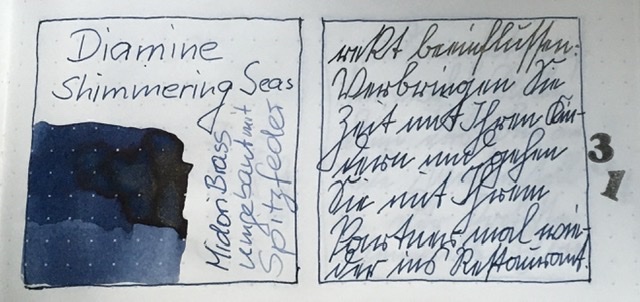 Diamine
Shimmering Seas
Midori Brass
umgebaut mit
Spitzfeder
rekt beeinflussen:
Verbringen Sie
Zeit mit Ihren Kin-
dern und gehen
Sie mit Ihrem
Partner mal wie-
der ins Restaurant.
3
1